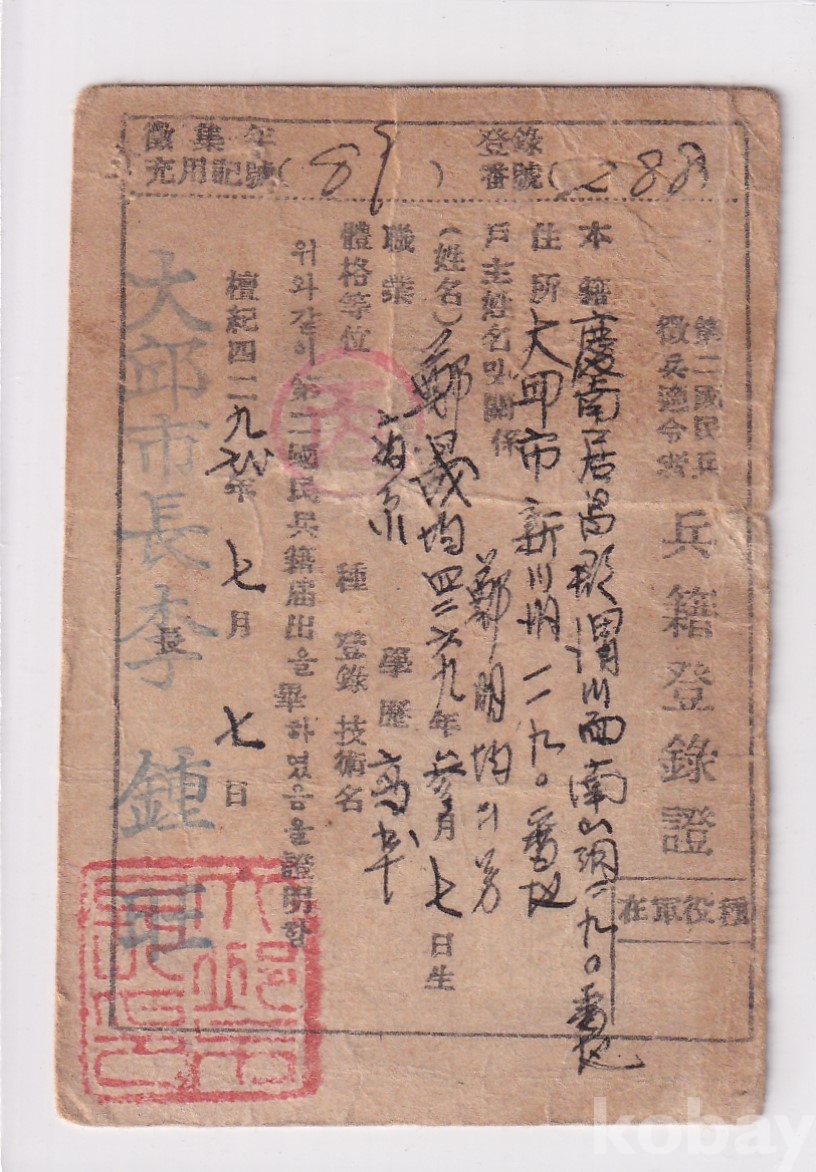 徵集年
充用記號(89)
登錄
番號(288)
第二國民兵
徵兵適令者
兵籍登錄證
在軍役種
本籍 慶南居昌郡渭川面南山洞二九〇番地
住所 大邱市新川洞一二九〇番地
戶主姓名및關係 鄭明均의
(姓名) 鄭 均 四二六九年 參月七日生
職業 學歷 高卒
體格等位 丙 種 登錄技術名
위와같이第二國民兵籍屆出을畢하였음을證明함
檀紀四二九 年七月七日
大邱市長 李鍾
大邱市長印
kobay